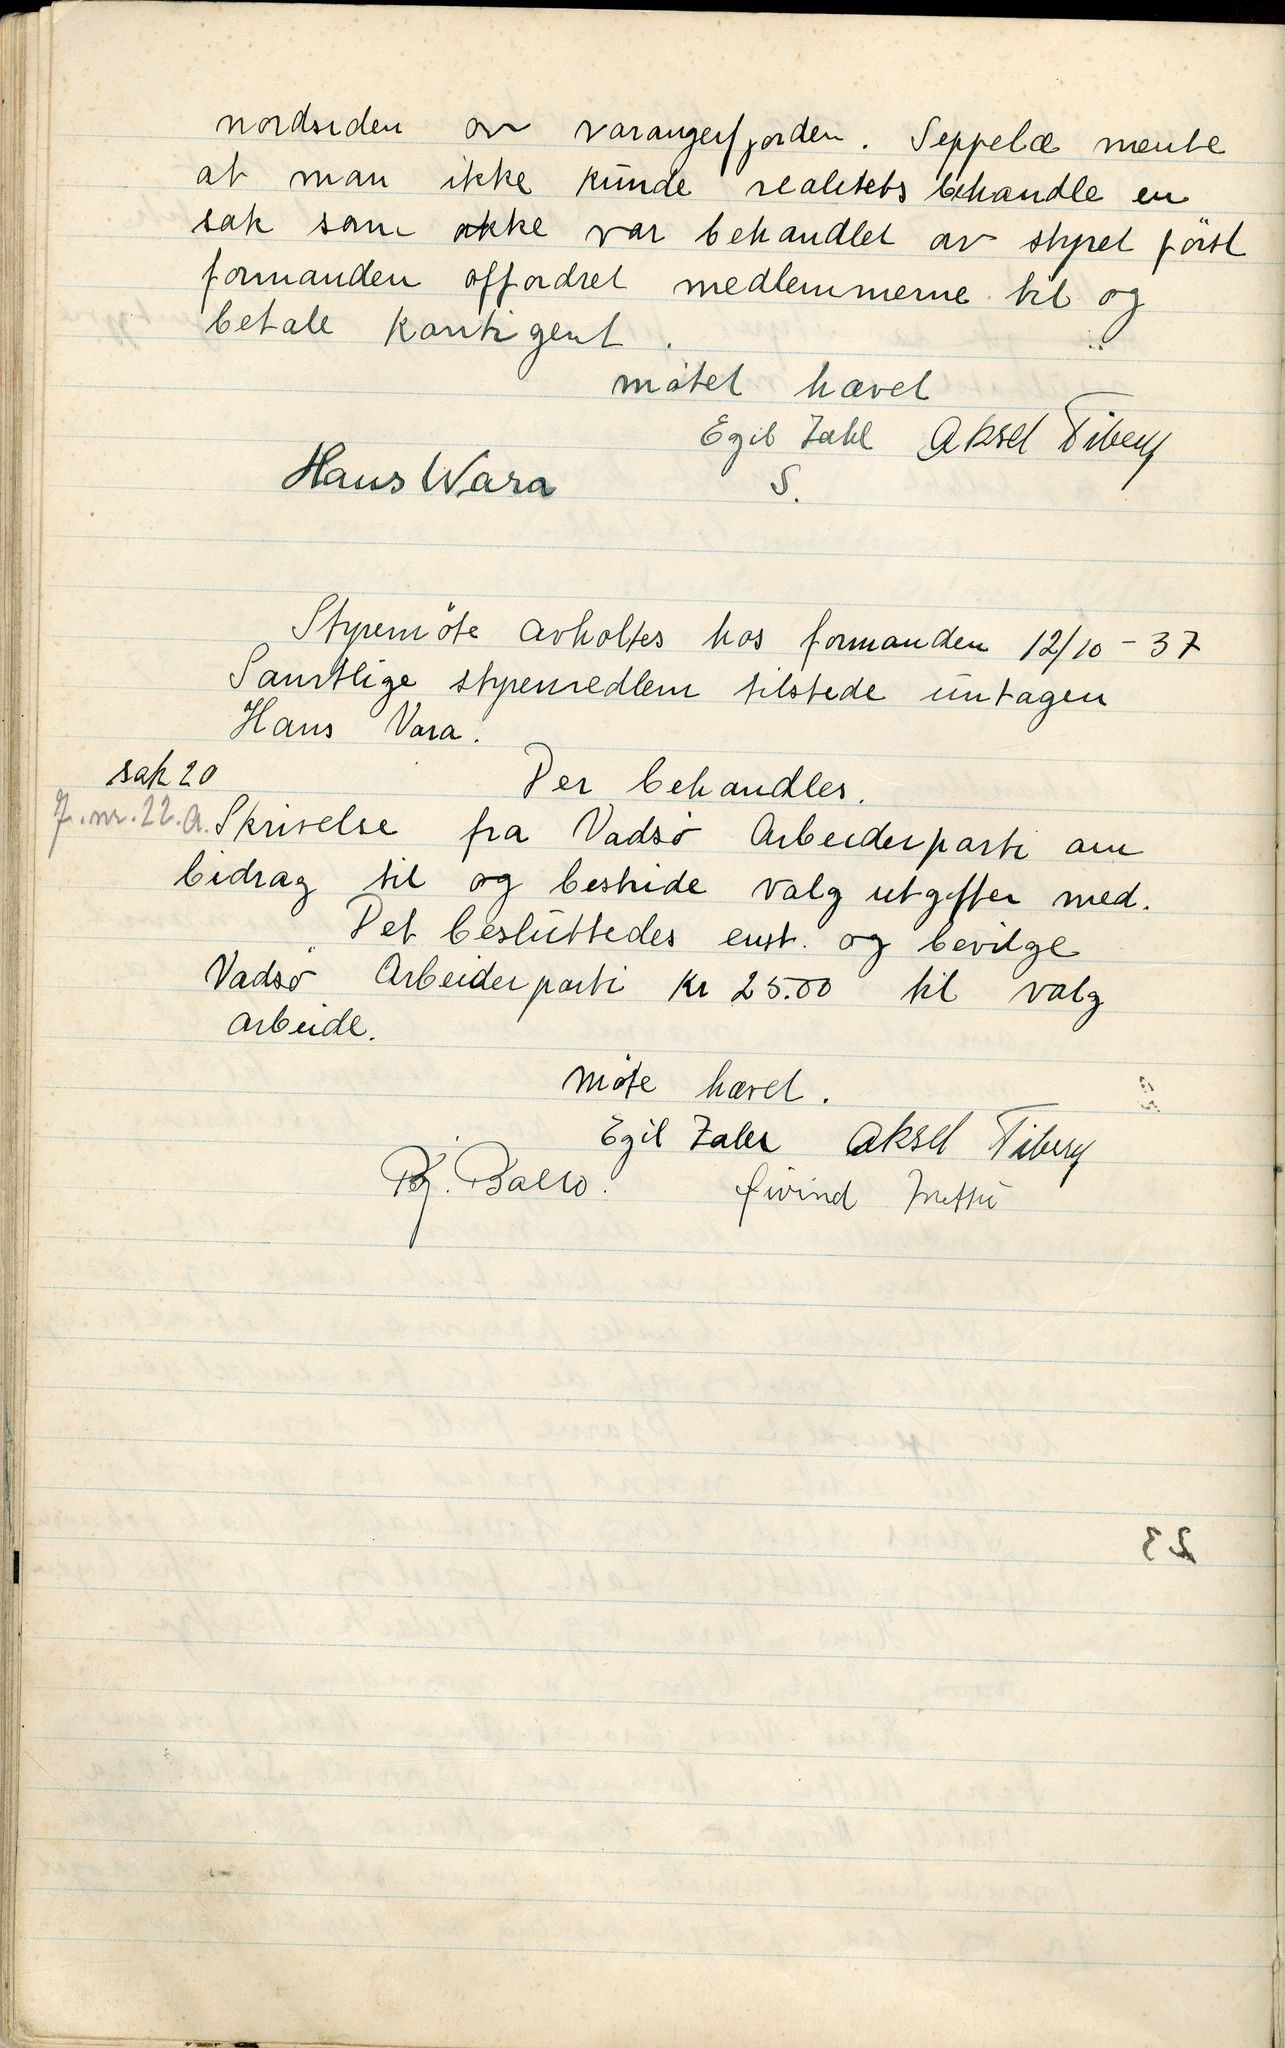 nordsiden av varangerfjorden. Seppelæ mente
at man ikke kunde realitetsbehandle en
sak som ikke var behandlet av styret först
formanden offordret medlemmerne til og
betale kontigent.
mötet hævet
Egil Zahl Aksel Fiberg
Hans Wara S.
Styremöte avholtes hos formanden 12/10 - 37
Samtlige styremedlem tilstede untagen
Hans Vara.
sak 20 Der behandles.
J. nr. 22. a. Skrivelse fra Vadsö Arbeiderparti om
bidrag til og bestride valg utgifter med.
Det besluttedes enst. og bevilge
Vadsö Arbeiderparti kr 25.00 til valg
arbeide.
Möte hævet.
Egil Zahl Aksel Fiberg
Bj. Ballo. Øivind
23